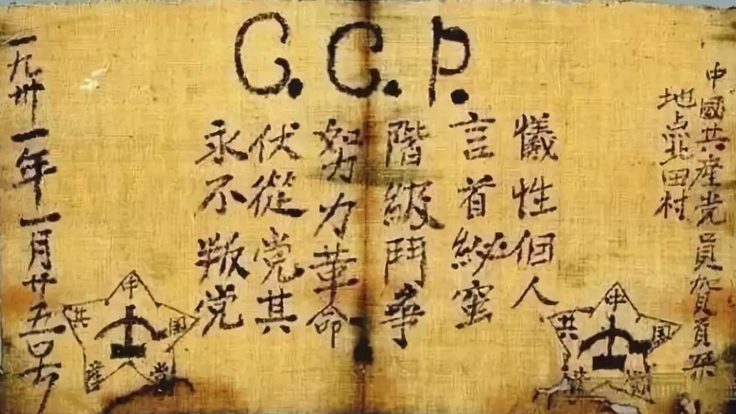 C.C.P.
中國共産党員賀頁朶
地点北田村
犧性個人
言首紗蜜
階級鬥争
努力革命
伏從党其
永不叛党
一九卅一年一月廿五号
中国共産党
中国共産党